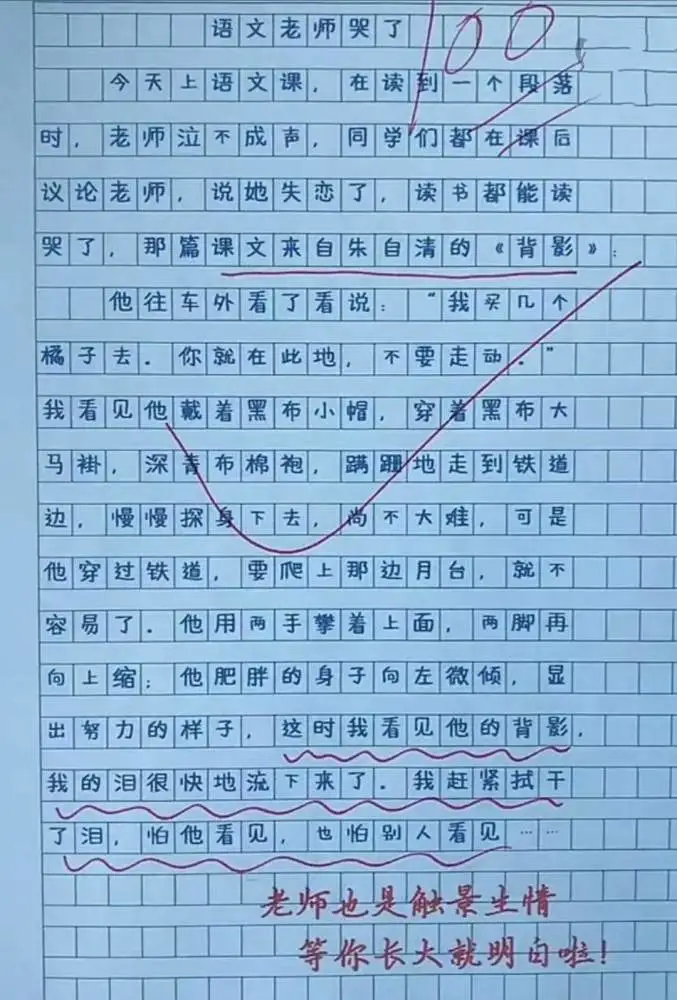 语文老师哭了
100
今天上语文课，在读到一个段落
时，老师泣不成声，同学们都在课后
议论老师，说她失恋了，读书都能读
哭了，那篇课文来自朱自清的《背影》：
他往车外看了看说：“我买几个
橘子去．你就在此地，不要走动．”
我看见他戴着黑布小帽，穿着黑布大
马褂，深青布棉袍，蹒跚地走到铁道
边，慢慢探身下去，尚不大难，可是
他穿过铁道，要爬上那边月台，就不
容易了．他用两手攀着上面，两脚再
向上缩；他肥胖的身子向左微倾，显
出努力的样子，这时我看见他的背影，
我的泪很快地流下来了．我赶紧拭干
了泪，怕他看见，也怕别人看见……
老师也是触景生情
等你长大就明白啦！